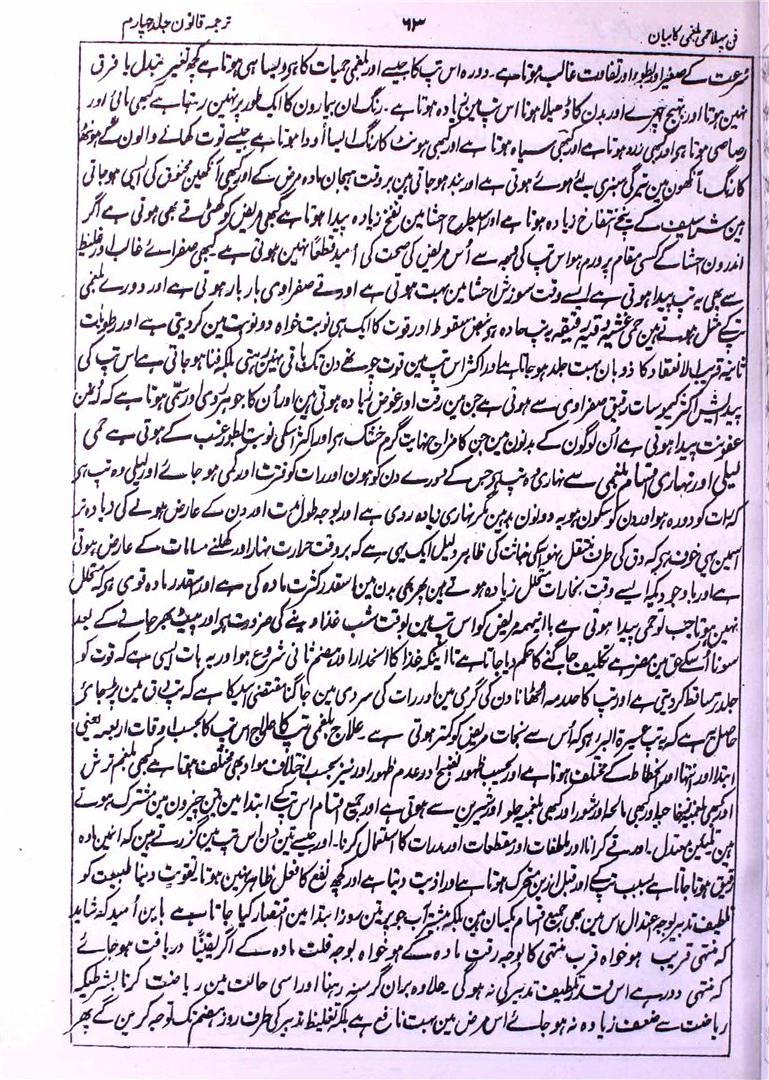 فن پہلا حمی بلغمی کا بیان ۶۳ ترجمہ قانون جلد چہارم
سرعت کے صغیر اور بطوء اور تفاوت غالب ہوتا ہے۔ دورہ اس تپ کا جیسے اور بلغمی حمیات کا ہو ویسا ہی ہوتا ہے کچھ تغیر تبدل یا فرق
نہین ہوتا اور تہیج چہرے اور بدن کا ڈھیلا ہونا اس تپ مین زیادہ ہوتا ہے۔ رنگ ان بیمارون کا ایک طور پر نہین رہتا ہے کبھی مائی اور
رصاصی ہوتا ہی اور کبھی زرد ہوتا ہے اور کبھی سیاہ ہوتا ہے اور کبھی ہونٹ کا رنگ ایسا اودا ہوتا ہے جیسے توت کھانے والون کے ہونٹھ
کا رنگ۔ آنکھون مین تیرگی سبزی لئے ہوئے ہوتی ہے اور بند ہو جاتی ہین بروقت ہیجان مادہ مرض کے اور کبھی آنکھین مخنوق کی ایسی ہو جاتی
ہین شراسیف کے نیچے انتفاخ زیادہ ہوتا ہے اور اسیطرح احشا مین نفخ زیادہ پیدا ہوتا ہے کبھی مریض کو کھٹی قے بھی ہوتی ہے اگر
اندرون احشا کے کسی مقام پر ورم ہو اس تپ کی وجہ سے اُس مریض کی صحت کی اُمید قطعًا نہین ہوتی ہے کبھی صفراے غالب اور غلیظ
سے بھی یہ تپ پیدا ہوتی ہے ایسے وقت سوزش احشا مین بہت ہوتی ہے اور قے صفراوی بار بار ہوتی ہے اور دورے بلغمی
تپ کے مثل ہوتے ہین حمی غشیہ دقیہ رقیقہ یہ تپ حادہ ہو نبض سقوط اور قوت کا ایک ہی نوبت خواہ دو نوبت مین کر دیتی ہے اور رطوبات
ثانیہ قریب الانعقاد کا ذوبان بہت جلد ہو جاتا ہے اور اکثر اس تپ مین قوت چوتھے دن تک باقی نہین رہتی بلکہ فنا ہو جاتی ہے اس تپ کی
پیدایش اکثر کیموسات رقیق صفراوی سے ہوتی ہے جن مین رقت اور غوص زیادہ ہوتی ہین اور اُن کا جوہر ردی اور سمّی ہوتا ہے کہ اُنمین
عفونت پیدا ہوتی ہے اُن لوگون کے بدنون مین جن کا مزاج نہایت گرم خشک ہی اور اکثر اسکی نوبت بطور غب کے ہوتی ہے حمی
لیلی اور نہاری اقسام بلغمی سے نہاری وہ تپ ہو جس کے دورے دن کو ہون اور رات کو فترت اور کمی ہو جائے اور لیلی وہ تپ ہی
کہ رات کو دورہ ہو اور دن کو سکون ہو یہ دونون بد ہین مگر نہاری زیادہ ردی ہے اور بوجہ طول مدت اور دن کے عارض ہونے کی زیادہ تر
اسمین یہی خوف ہو کہ دق کی طرف منتقل نہو اسکی خباثت کی ظاہر دلیل ایک یہی ہے کہ بروقت حرارت نہار اور کھلنے مسامات کے عارض ہوتی
ہے اور باوجودیکہ ایسے وقت بخارات تحلل زیادہ ہوتے ہین پھر بھی بدن مین اسقدر کثرت مادہ کی ہے اور اسقدر مادہ قوی ہو کہ تحلل
نہین ہوتا جب تو حمی پیدا ہوتی ہے با اینہمہ مریض کو اس تپ مین بوقت شب غذا دینے کی ضرورت ہو اور پیٹ بھر جانے کے بعد
سونا اُسکے حق مین مضر ہے تکلیف جاگنے کا حکم دیا جاتا ہے تا اینکہ غذا کا انحدار اور ہضم ثانی شروع ہو اور یہ بات ایسی ہے کہ قوت کو
جلد تر ساقط کر دیتی ہے اور تپ کا صدمہ اٹھانا دن کی گرمی مین اور رات کی سردی مین جاگنا مقتضی اسیکا ہے کہ تپ دق مین پڑ جائے
حاصل یہ ہے کہ یہ تپ عسیرۃ البرء ہو کہ اُس سے نجات مریض کو کمتر ہوتی ہے ۔ علاج بلغمی تپ کا علاج اس تپ کا بحسب اوقات اربعہ یعنی
ابتدا اور انتہا اور انحطاط کے مختلف ہوتا ہے اور بحسب ظہور نضج اور عدم ظہور اور نیز بحسب اختلاف مواد بھی مختلف ہوتا ہے کبھی بلغم ترش
اور کبھی بلغم تفہ اور کبھی مالح اور شور اور کبھی بلغمیہ حلو اور شیرین سے ہوتی ہے اور جمیع اقسام اس تپ کے ابتدا مین تین چیزون مین مشترک ہوتے
ہین تلیین معتدل۔ اور قے کرنا اور ملطفات اور مقطعات اور مدرات کا استعمال کرنا۔ اور جیسے تین دن اس تپ مین گزرتے ہین کہ اُنمین مادہ
رقیق ہوتا جاتا ہے بسبب تپ کے اور قبل ازین متحرک ہوتا ہے اور اذیت دیتا ہے اور کچھ نفع کا فعل ظاہر نہین ہوتا۔ تقویت دینا طبیعت کو
تلطیف تدبیر بوجہ اعتدال اس مین بھی جمیع اقسام یکسان ہین بلکہ ہمیشہ آب جو پر تین روز ابتدا مین اقتصار کیا جاتا ہے باین اُمید کہ شاید
کہ منتہی قریب ہو خواہ قرب منتہی کا بوجہ رقت مادہ کے ہو خواہ بوجہ قلت مادہ کے اگر یقینًا دریافت ہو جائے
کہ منتہی دور ہے اس قدر تلطیف تدبیر کی نہ ہوگی۔ علاوہ بران گرسنہ رہنا اور اسی حالت مین ریاضت کرنا بشرطیکہ
ریاضت سے ضعف زیادہ نہ ہو جائے اس مرض مین بہت نافع ہے بلکہ تغلیظ تدبیر کی طرف روز ہضم تک توجہ کرین گے پھر